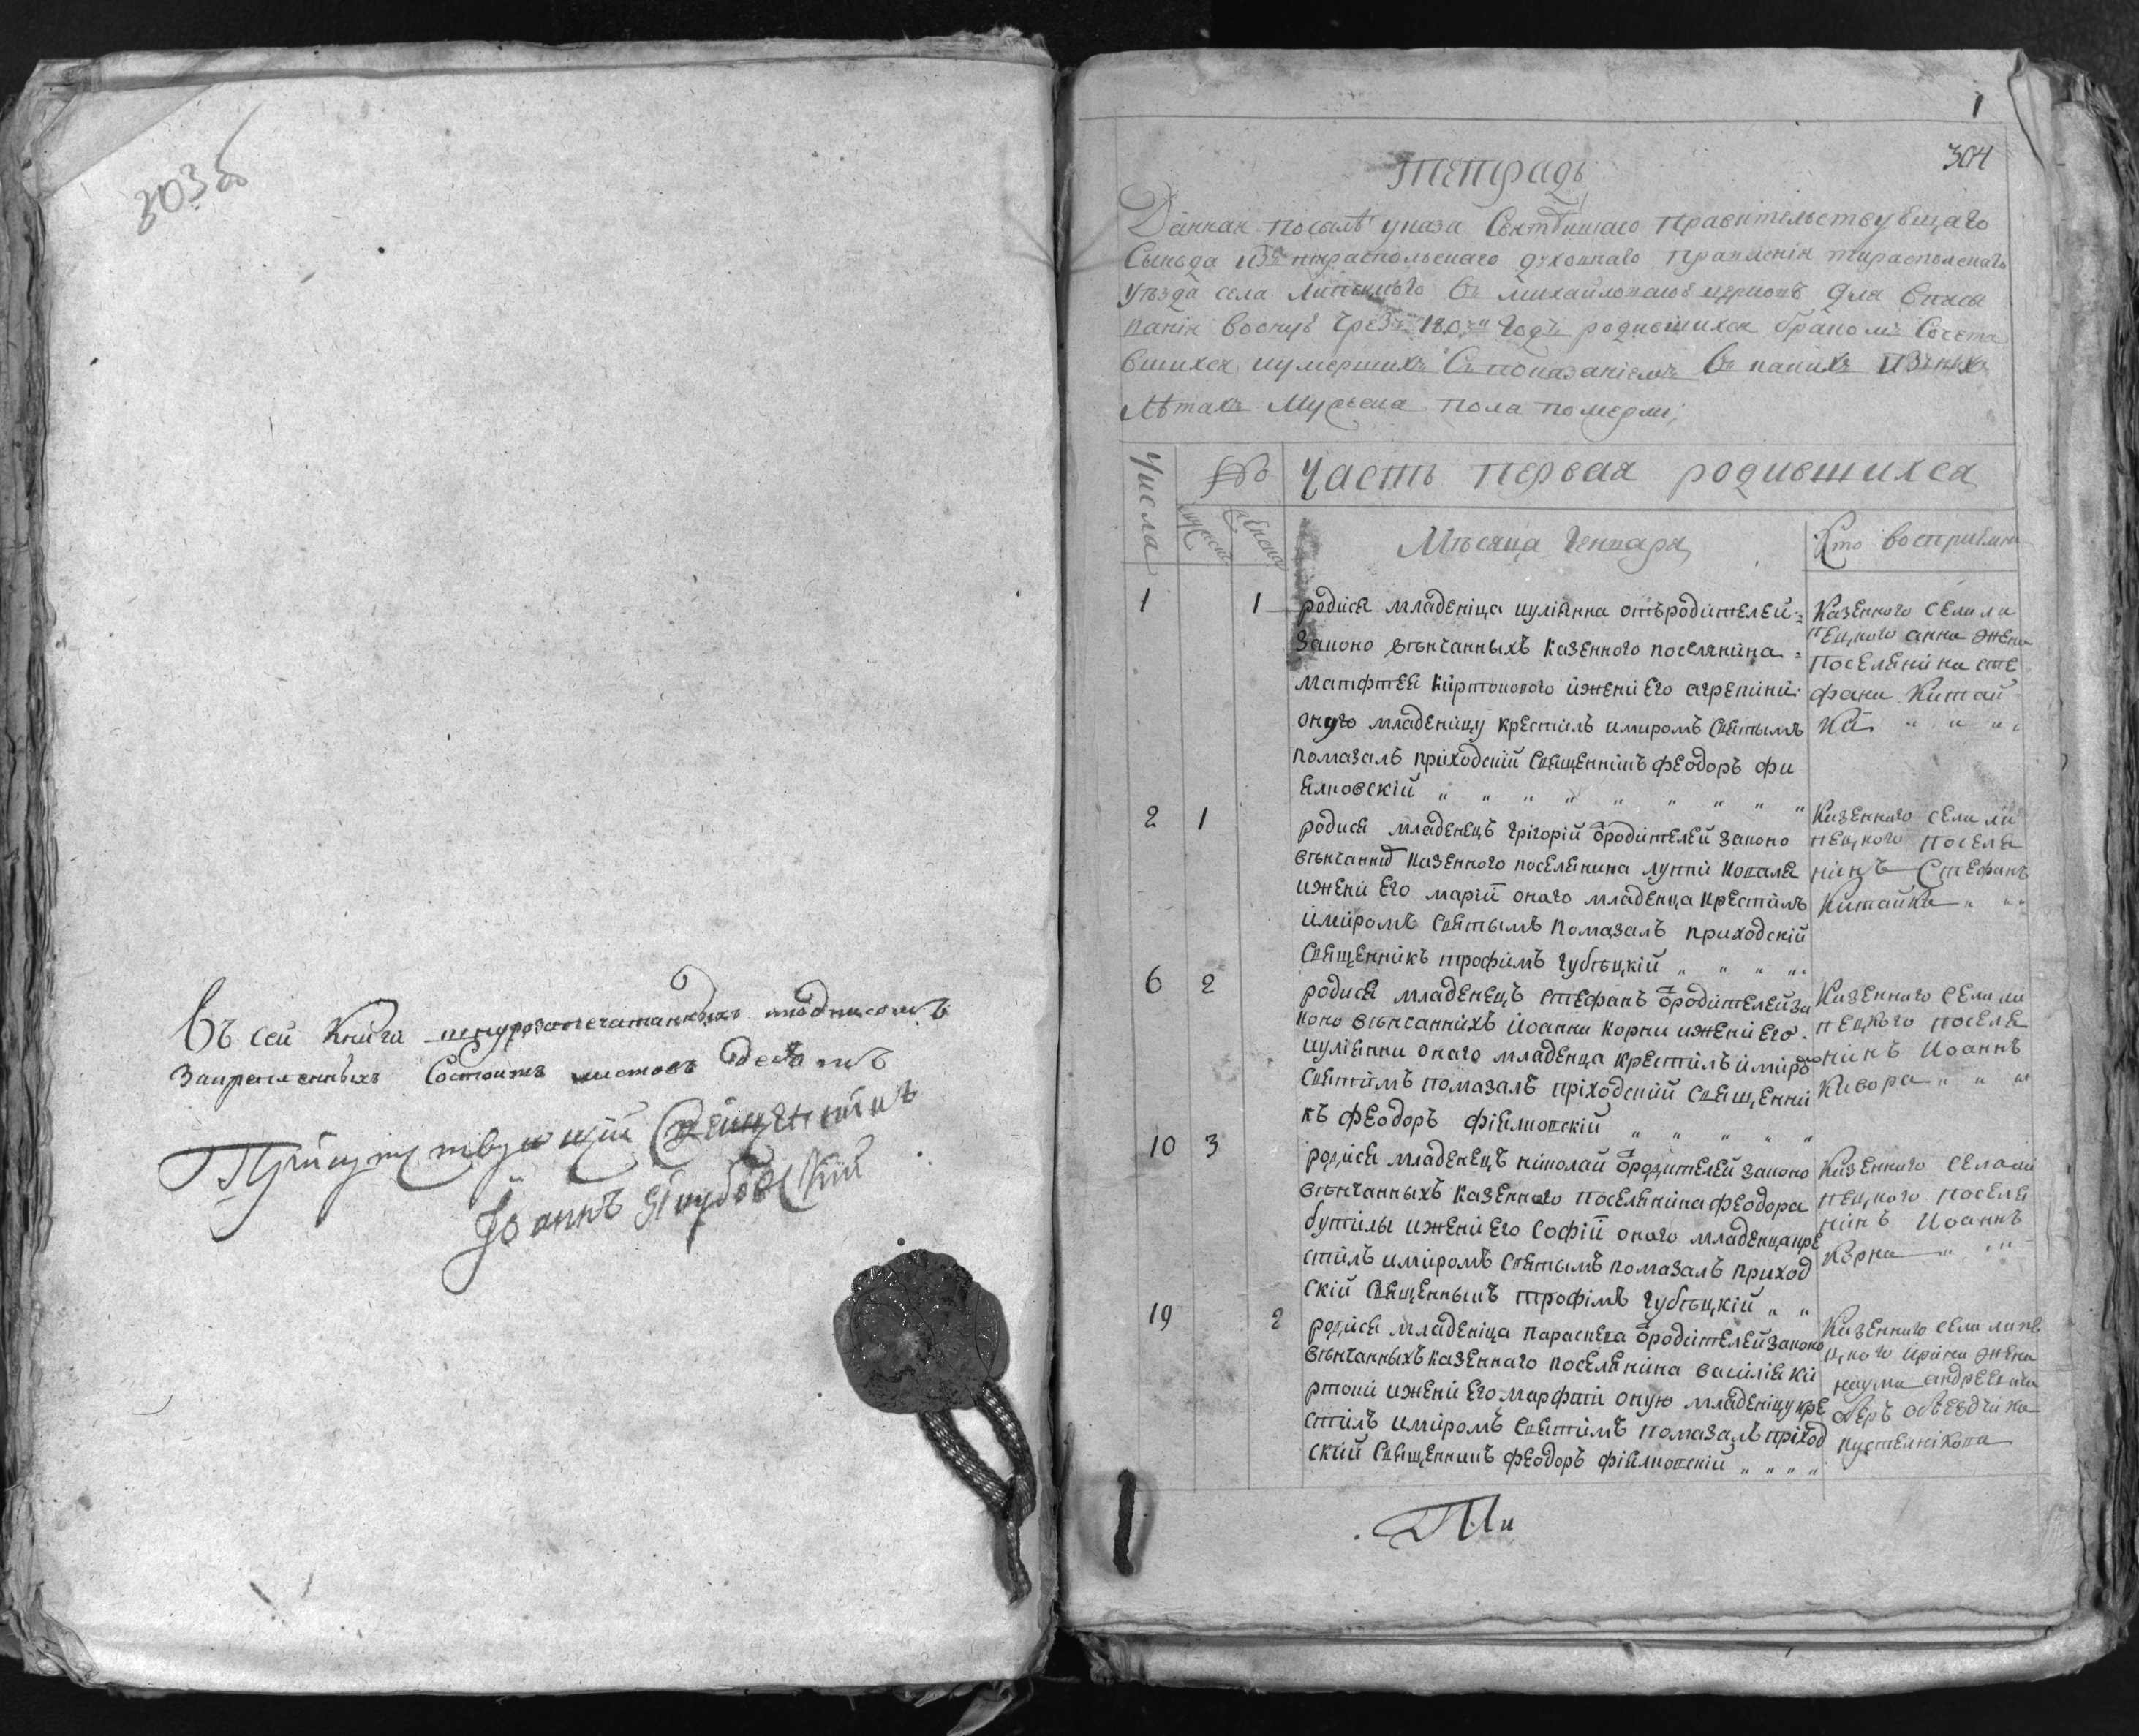 303 об
Въ сей книги шнурозапечатанныхъ подписомъ
Закрепленныхъ Состоитъ листовъ десять
Присутствующій Священникъ
Іоаннъ Якубовскій
1
304
Тетрадь
Данная посылѣ указа Святѣйшаго Правительствующаго
Сынода изъ тираспольскаго духовнаго правленія тираспольскаго
уѣзда села Липецкого въ михайловскою церковъ для вписы
ванія воону чрезъ год родившихся бракомъ Сочета
вшихся иумершихъ Съпоказаніемъ въ какихъ
лѣтахъ Мужеска пола померли;
Числа
№
Часть первая родившихся
мужеска
женска
Мѣсяца Генваря
Кто восприемн
1 1 родися младеніца иулиянна отъродителей
Законо вѣнчанныхъ казенного поселянина
матфтея Киртокового ижени Его агрепини
оную младеницу крестилъ имиромъ Святымъ
помазалъ приходскій Священникъ феодоръ фи
ялковскій " " " " " " " " "
Казенного села ли
пецкого анна жена
поселянина сте
фана Китай
ка " " "
2 1 родися младенецъ григорій ѿродителей законо
вѣнчанныхъ казенного поселянина луки коваля
ижени Его маріи оного младенца крестилъ
имиромъ Святымъ помазалъ приходскій
Священникъ трофимъ губѣцкій " " " "
Казенного села ли
пецкого поселя
нинъ Стефанъ
Китайка " "
6 2 родися младенецъ стефанъ ѿродителей за
коно вѣнчаннихъ Иоанна корни ижени Его
иулиянни оного младенца крестилъ имиро
Святимъ помазалъ приходскій Священни
къ феодоръ фіялковскій " " " " "
Казенного села ли
пецкого поселя
нинъ Иоаннъ
Кивора " " "
10 3 родися младенецъ николай ѿродителей законо
вѣнчанныхъ казенного поселянина феодора
бутилы ижени Его Софіи оного младенца кре
стилъ имиромъ Святымъ помазалъ приход
скій Священныкъ трофімъ губѣцкій " "
Казенного села ли
пецкого поселя
нинъ Иоаннъ
Корна " " "
19 2 родися младеніца параскева ѿродителей законо
вѣнчанныхъ казенного поселянина василія ки
ртоки ижени Его марфти оную младеницу кре
стилъ имиромъ Святимъ помазалъ приход
скій Священникъ феодоръ фіялковскій " " " "
Казенного села липе
цкого ирина жена
наума андреева
оберъ обѣездчика
пустелнікова